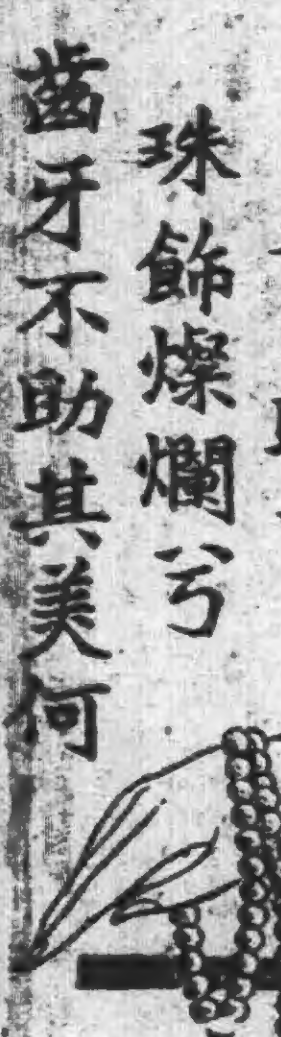 珠飾燦爛兮
齒牙不助其美何